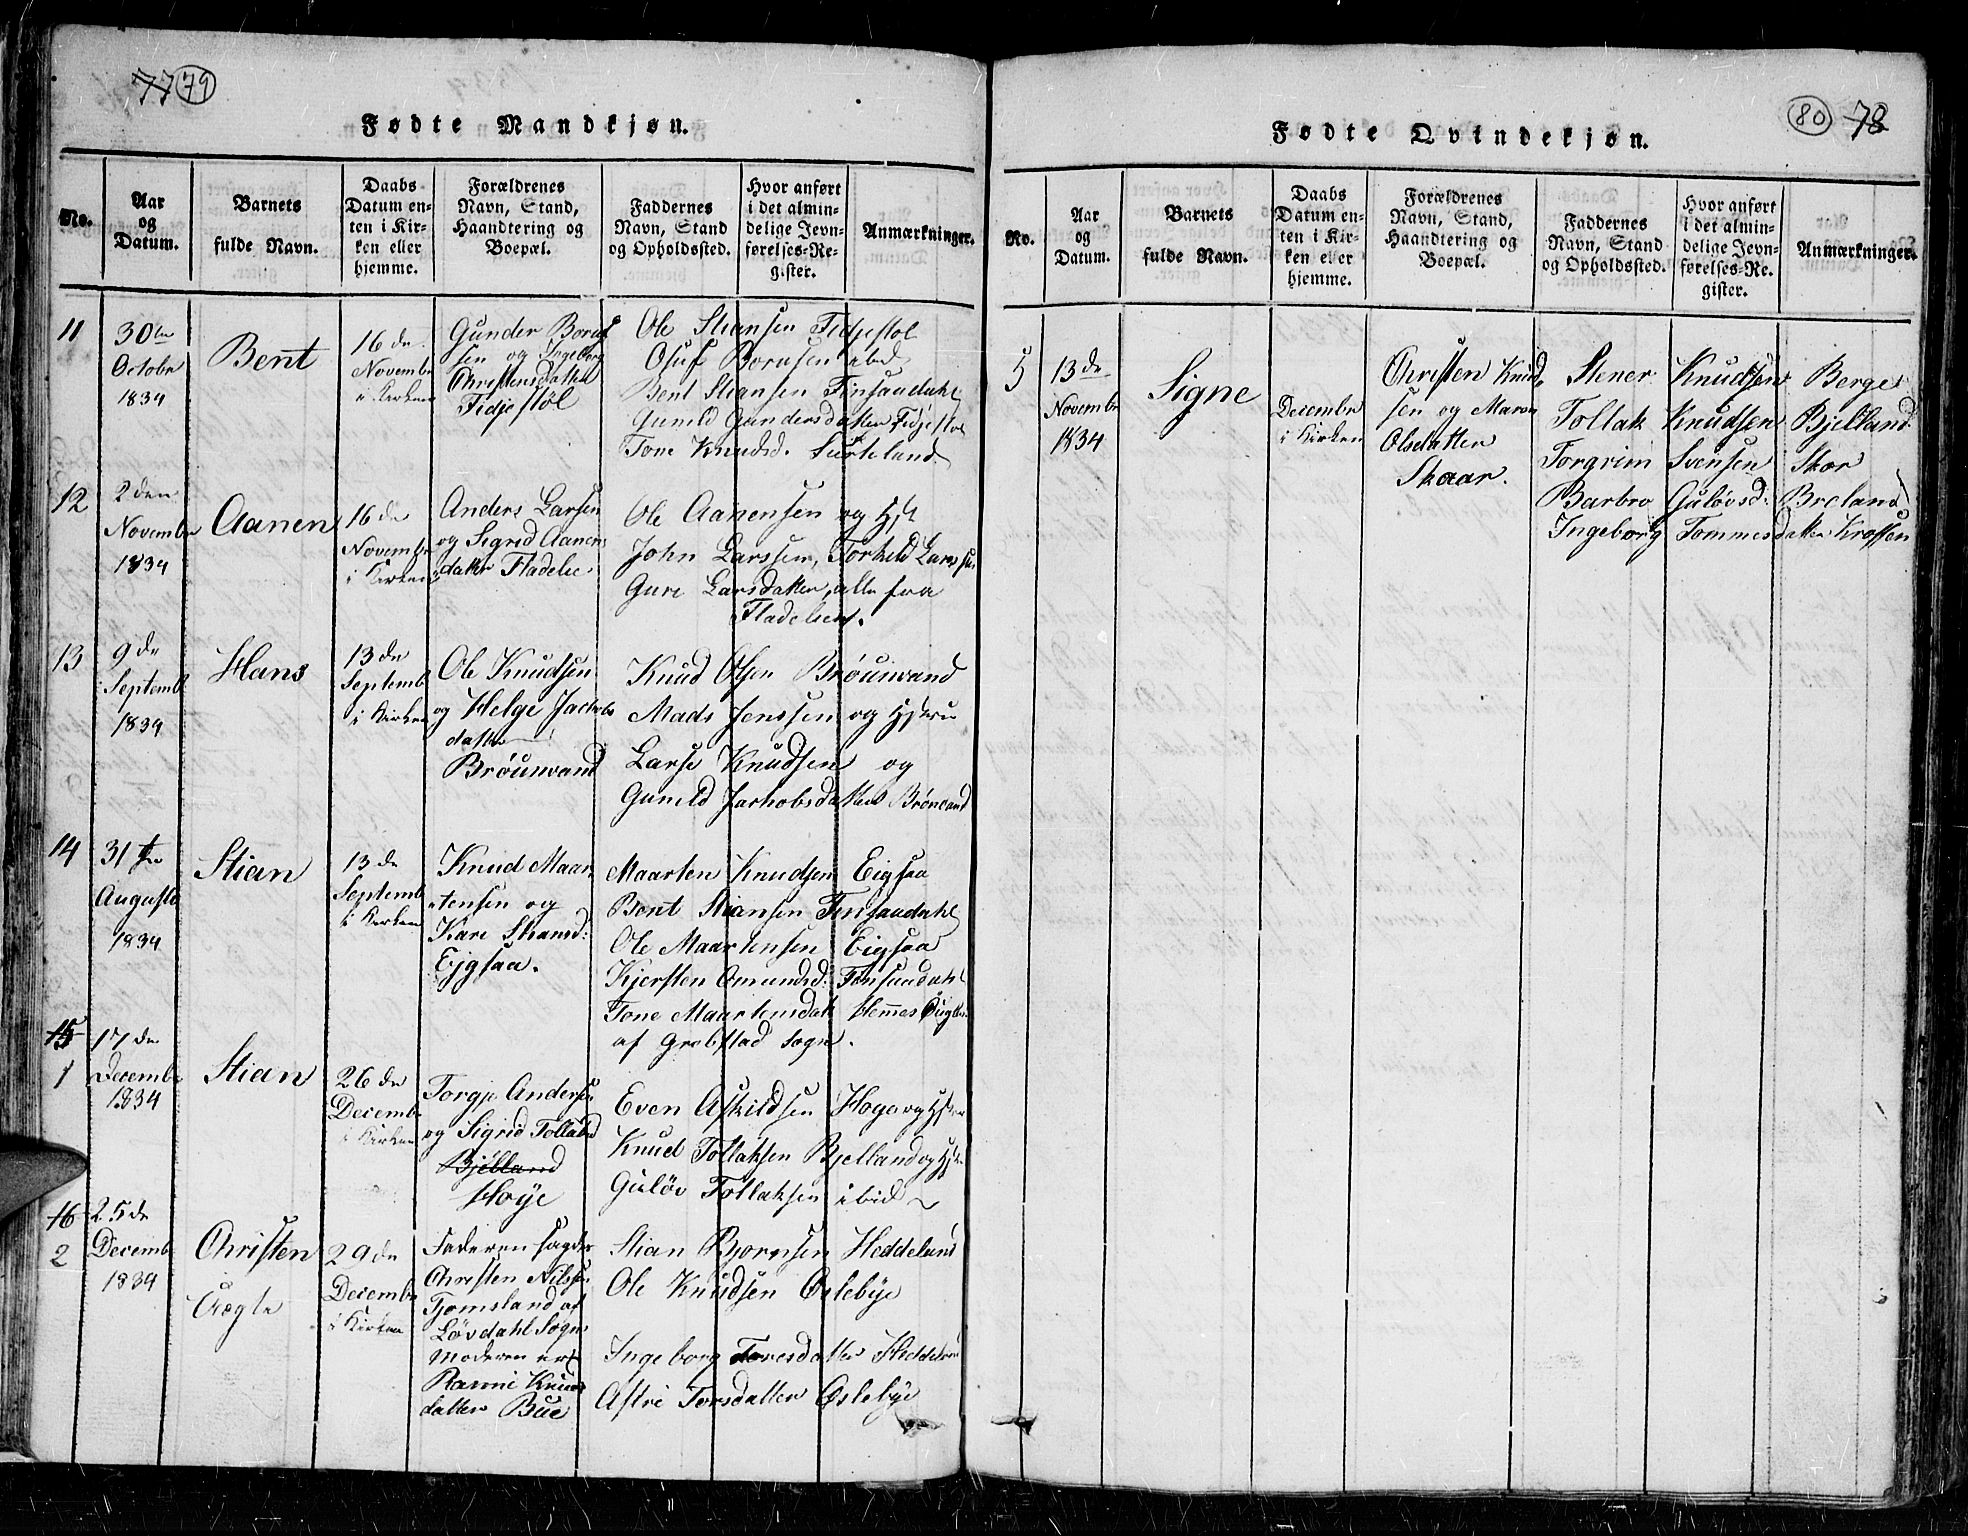 77 79
Fødte Mandkjøn.
No.
Aar
og
Datum.
Barnets
fulde Navn.
Daabs
Datum en-
ten i Kir-
ken eller
hjemme.
Forældrenes
Navn, Stand,
Haandtering og
Boepæl.
Faddernes
Navn, Stand
og Opholdssted.
Hvor anført
i det almin-
delige Jevn-
førelses-Re-
gister.
Anmærkninger.
11
30te
October
1834
Bent
16 de
Novembr
i Kirken
Gunder Borus
sen og Ingeborg
Christensdatter
Fidjestøl
Ole Stiansen Fidjestol
Osuf Borusen ibd
Bent Stiansen Finsaadahl
Gunild Gundersdatter Fidjestol
Tone Knudsd. Surteland
12
2 den
Novembr
1834
Aanen
16 de
Novembr
i Kirken
Anders Larsen
og Sigrid Aanens
datter Fladelie
Ole Aanensen og Hst
John Larssen, Torkild Larssen
Guri Larsdatter, alle fra
Fladelien.
13
9 de
Septembr
1834
Hans
13 de
Septemb
i Kirken
Ole Knudsen
og Helge Jachobs
datter
Brøunvand
Knud Olsen Brøunvand
Mads Jenssen og Hstru
Larse Knudsen og
Gunild Jachobsdatter Brønvand
14
31 te
Augusto
1834
Stian
13 de
Septemb
i Kirken
Knud Maar
tensen og
Kari Stiansd:
Ejgsaa.
Maarten Knudsen Eigsaa
Bent Stiansen Finsaadahl
Ole Maartensen Eigsaa
Kjersten Omundsd: Finsaadahl
Tone Maartensdatt Hemes
af Grebstad Sogn.
15
1
17 de
Decembr
1834
Stian
26 de
Decembr
i Kirken
Torgje Andersen
og Sigrid Tollaksd
Bjelland
Hoye
Even Askildsen Hoye og Hstru
Knud Tollaksen Bjelland og Hst
Guløv Tollaksen ibid
16
2
25 de
Decemb
1834
Christen
Uægte
29 de
Decembr
i Kirken
Faderen sagdes
Christen Nilssen
Tjomsland af
Løvdahl Sogn
Moderen er
Ranni Knuds
datter Bue
Stian Bjornsen Heddeland
Ole Knudsen Oslebye
Ingeborg Toresdatter Heddeland
Astri Torsdatter Øslebye
80 78
Fødte Qvindekjøn.
No.
Aar
og
Datum.
Barnets
fulde Navn.
Daabs
Datum en-
ten i Kir-
ken eller
hjemme.
Forældrenes
Navn, Stand,
Haandtering og
Boepæl.
Faddernes
Navn, Stand
og Opholdssted.
Hvor anført
i det almin-
delige Jevn-
førelses-Re-
gister.
Anmærkninger.
5
13 de
Novembr
1834
Signe
Decembr
i Kirken
Christen Knud
sen og Maren
Olsdatter
Skaar.
Stener Knudsen Berge
Tollak Knudsen Bjelland
Torgrim Svensen Skor
Barbro Guløvsd: Breland
Ingeborg Tommesdatter Krossen